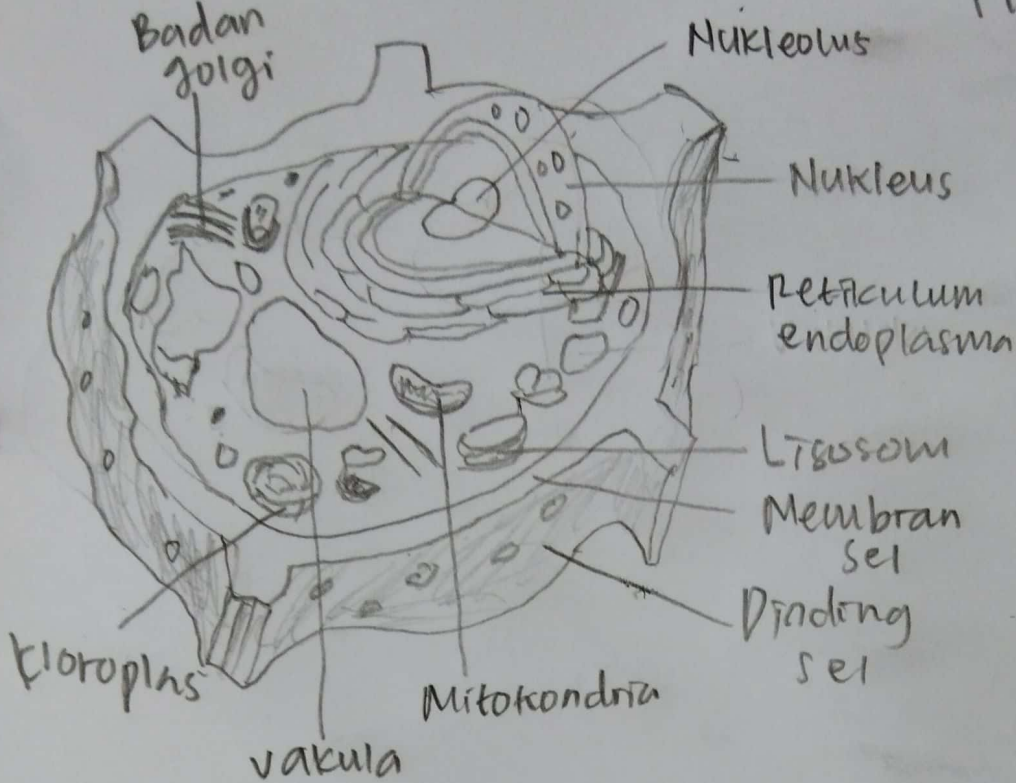 Badan
golgi
Nukleolus
Nukleus
Reticulum
endoplasma
Lisosom
Membran
sel
Dinding
sel
Kloroplas
Mitokondria
Vakula